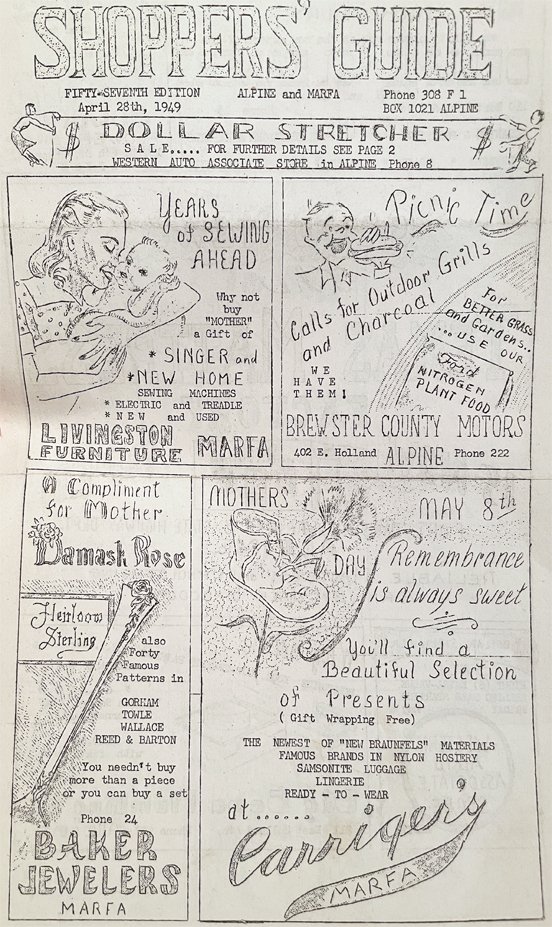 SHOPPERS' GUIDE
FIFTY-SEVENTH EDITION ALPINE and MARFA Phone 308 F 1
April 28th, 1949 BOX 1021 ALPINE
$ DOLLAR STRETCHER $
SALE..... FOR FURTHER DETAILS SEE PAGE 2
WESTERN AUTO ASSOCIATE STORE in ALPINE Phone 8
YEARS
of SEWING
AHEAD
Why not
buy
"MOTHER"
a Gift of
* SINGER and
*NEW HOME
SEWING MACHINES
* ELECTRIC and TREADLE
* NEW and USED
LIVINGSTON
FURNITURE MARFA
Picnic Time
Calls for Outdoor Grills
and Charcoal
WE
HAVE
THEM!
For
BETTER GRASS
and Gardens..
...USE OUR
Ford
NITROGEN
PLANT FOOD
BREWSTER COUNTY MOTORS
402 E. Holland ALPINE Phone 222
A Compliment
for Mother
Damask Rose
Heirloom
Sterling
also
Forty
Famous
Patterns in
GORHAM
TOWLE
WALLACE
REED & BARTON
...You needn't buy
more than a piece
or you can buy a set
Phone 24
BAKER
JEWELERS
MARFA
MOTHERS
DAY
MAY 8th
Remembrance
is always sweet
You'll find a
Beautiful Selection
of Presents
( Gift Wrapping Free)
THE NEWEST OF "NEW BRAUNFELS" MATERIALS
FAMOUS BRANDS IN NYLON HOSIERY
SAMSONITE LUGGAGE
LINGERIE
READY - TO - WEAR
at......
Carriger's
MARFA